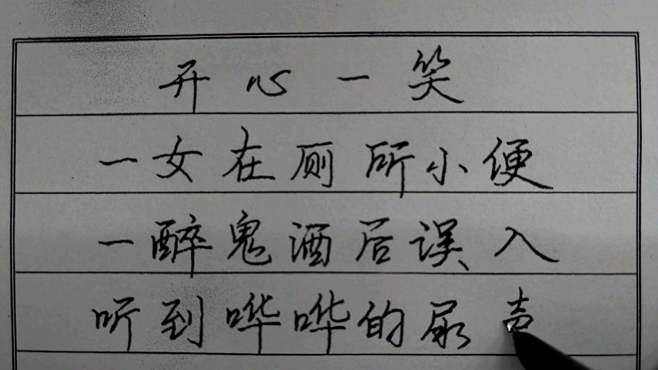 开心一笑
一女在厕所小便
一醉鬼酒后误入
听到哗哗的尿声